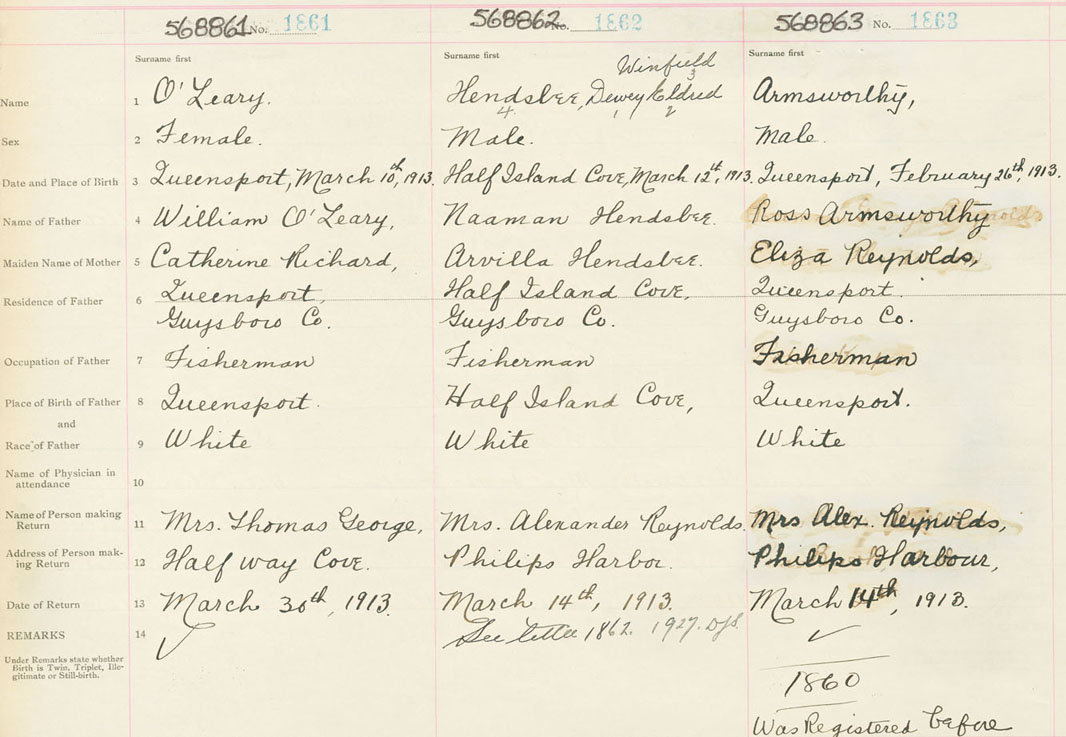 568861 No. 1861 568862 No. 1862 568863 No. 1863
Surname first Surname first Surname first
Winfield
3
Name 1 O'Leary. Hendsbee, Dewey Eldred Armsworthy,
4 1 2
Sex 2 Female. Male. Male.
Date and Place of Birth 3 Queensport, March 10th, 1913. Half Island Cove, March 12th, 1913. Queensport, February 26th, 1913.
Name of Father 4 William O'Leary, Naaman Hendsbee. Ross Armsworthy
Maiden Name of Mother 5 Catherine Richard, Arvilla Hendsbee. Eliza Reynolds,
Residence of Father 6 Queensport, Half Island Cove, Queensport.
Guysboro Co. Guysboro Co. Guysboro Co.
Occupation of Father 7 Fisherman Fisherman Fisherman
Place of Birth of Father 8 Queensport. Half Island Cove, Queensport.
and
Race of Father 9 White White White
Name of Physician in
attendance 10
Name of Person making
Return 11 Mrs. Thomas George, Mrs. Alexander Reynolds. Mrs Alex. Reynolds,
Address of Person mak-
ing Return 12 Half way Cove. Philips Harbor. Philips Harbour,
Date of Return 13 March 30th, 1913. March 14th, 1913. March 14th, 1913.
REMARKS 14 ✓ See letter 1862. 1927. ✓
Under Remarks state whether
Birth is Twin, Triplet, Ille-
gitimate or Still-birth.
1860
Was Registered before